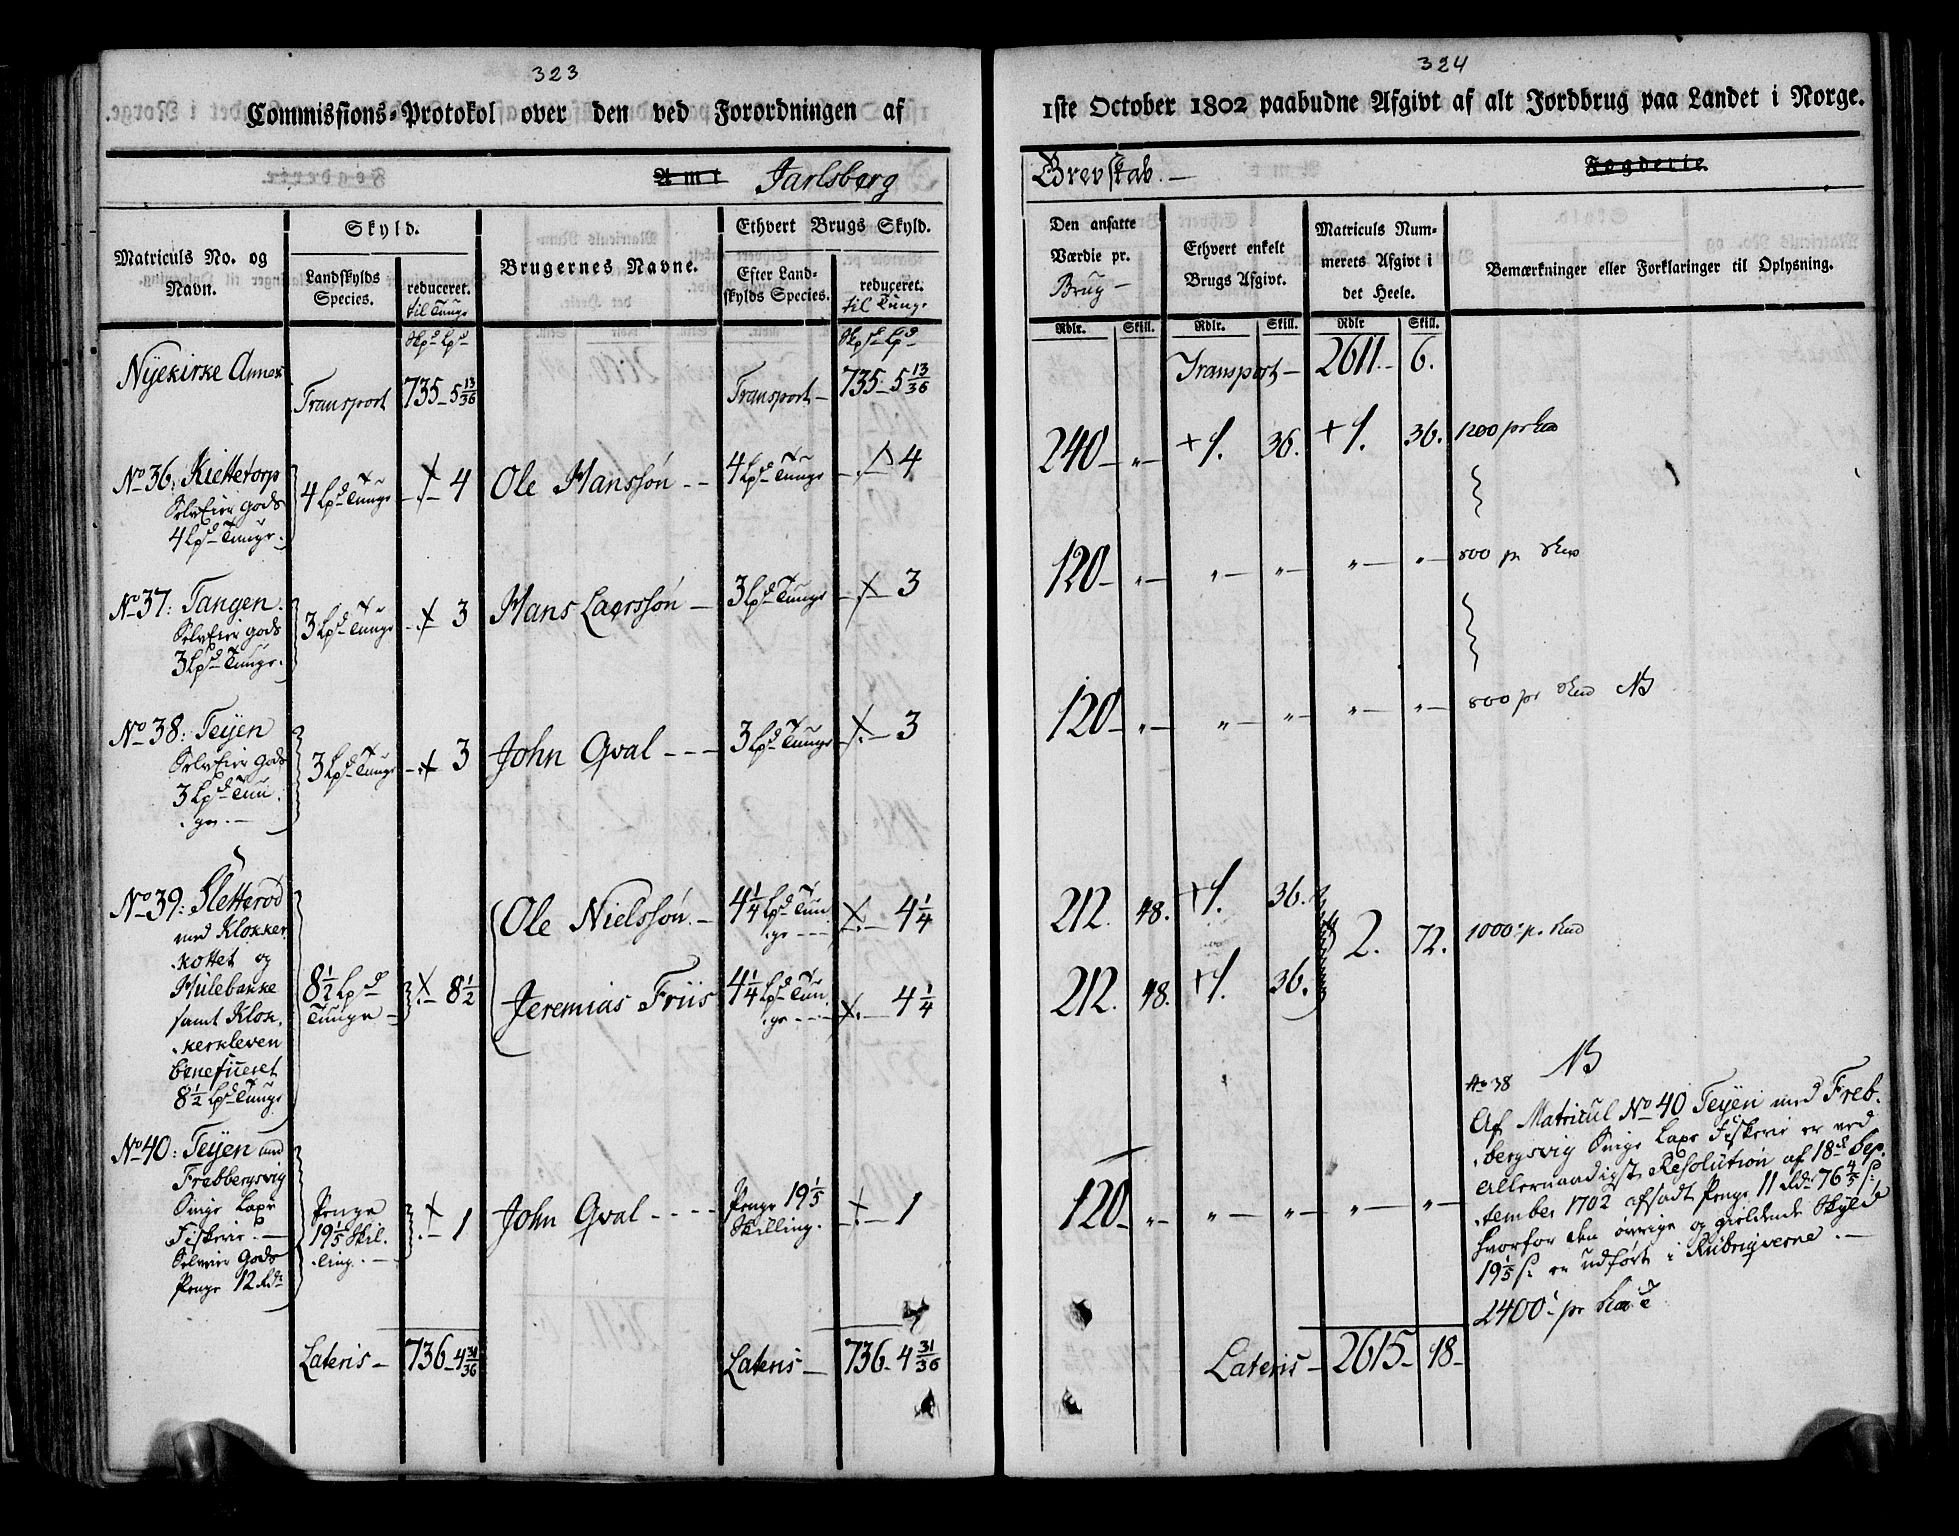 323
Commissions-Protokol over den ved Forordningen af
Amt Jarlsberg
Matriculs No. og Navn.
Skyld.
Landskylds Species.
reduceret. til Tunge
Brugernes Navne.
Ethvert Brugs Skyld.
Efter Landskylds Species.
reduceret. til Tunge
Skpd Lpd
Skpd Lpd
Nyekirke Annex
Transport 735 - 5 13/36
Transport - 735 - 5 13/36
No 36: Kiettetorp
SelvEier Gods
4 Lpd Tunge.
4 Lpd Tunge - . - 4
Ole Hanssøn - -
4 Lpd Tunge - . - 4
No 37: Tangen.
SelvEier Gods
3 Lpd Tunge.
3 Lpd Tunge - . - 3
Hans Laerssøn -
3 Lpd Tunge - . - 3
No 38: Teyen
SelvEier Gods
3 Lpd Tun
ge. -
3 Lpd Tunge - . - 3
John Qval - - -
3 Lpd Tunge - . - 3
No 39: Sletterød
med Klokker
kottet og
Hulebakke
samt Klok
kerkleven
beneficeret
8 1/2 Lpd Tunge
8 1/2 Lpd
Tunge -
. - 8 1/2
Ole Nielssøn. -
4 1/4 Lpd Tun
ge - - -
. - 4 1/4
Jeremias Friis
4 1/4 Lpd Tun
ge - - -
. - 4 1/4
No 40: Teyen med
Frebbergsvig
Siige Laxe
Fiskerie. -
Selveier Gods
Penge 12 Rd
Penge
19 1/5 Skil
ling. -
. - 1
John Qval - - - -
Penge 19 1/5
Skilling.
- . - 1
Lateris - 736 - 4 31/36
Lateris - 736 - 4 31/36
324
1ste October 1802 paabudne Afgivt af alt Jordbrug paa Landet i Norge.
Grevskab. - Fogderie.
Den ansatte Værdie pr. Brug -
Ethvert enkelt Brugs Afgivt.
Matriculs Nummerets Afgivt i det Heele.
Bemærkninger eller Forklaringer til Oplysning.
Rdlr. Skill. Rdlr. Skill. Rdlr Skill.
Transport - 2611. - 6.
240 - „ - + 1. 36. + 1. 36. 1200 pr
120 - „ - „ - „ - „ - „ - 800 pr
120 - „ - „ - „ - „ - „ - 800 pr NB
212. 48. + 1. 36.
2. 72. 1000 pr
212. 48. + 1. 36.
NB
No 38
Af Matricul No 40 Teyen med Freb
bergsvig Siige Laxe Fiskerie er ved
allernaadigst Resolution af 18de Sep
tember 1702 afsadt Penge 11 Rdr 76 4/5 s:
hvorfor den øvrige og gieldende Skyld
19 1/5 s: er udført i Rubriqverne. -
120 - „ - „ - „ - „ - „ -
2400 pr
Lateris - 2615 - 18 -